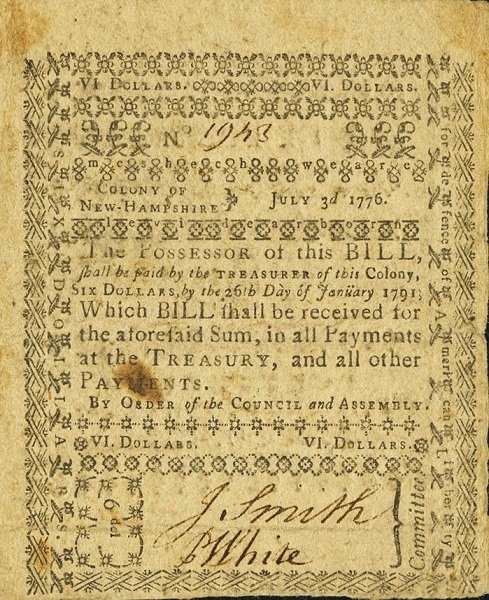 VI DOLLARS. VI. DOLLARS.
No 1943
m e s h e c h w e a r e
COLONY OF
NEW-HAMPSHIRE
JULY 3d 1776.
l e v i d e a r b o r n
The POSSESSOR of this BILL,
shall be paid by the TREASURER of this Colony,
SIX DOLLARS, by the 26th Day of January 1791;
Which BILL shall be received for
the aforesaid Sum, in all Payments
at the TREASURY, and all other
PAYMENTS.
BY ORDER of the COUNCIL and ASSEMBLY.
VI. DOLLARS. VI. DOLLARS.
6
J. Smith
P White
Committee
SIX DOLLARS.
for defence of American liberty